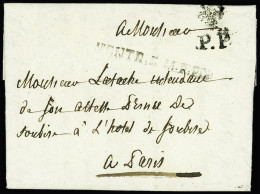 a Monsieur
P.P.
Monsieur intendant
de Son altesse de
Soubise à L'hotel de Soubise
a Paris